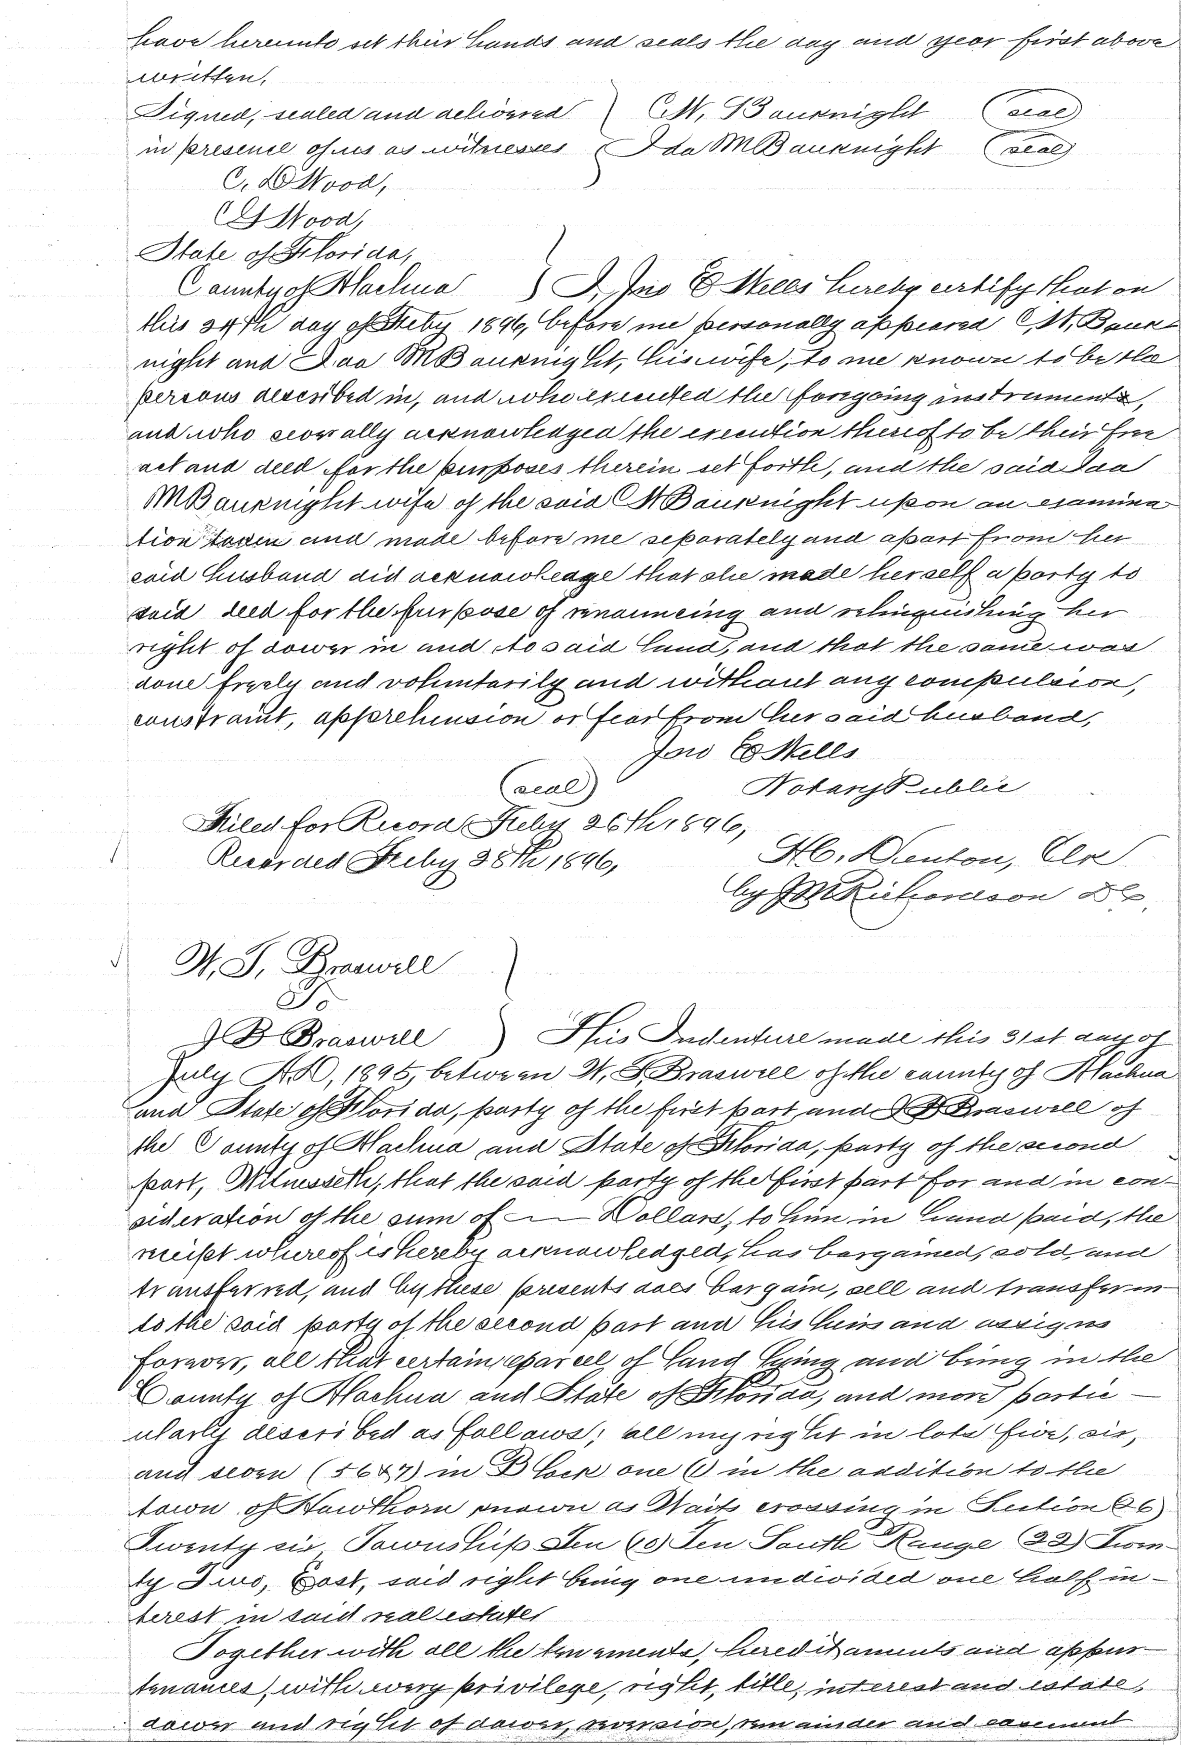 have hereunto set their hands and seals the day and year first above
written,
Signed, sealed and delivered } C.W. Bauknight (seal)
in presence of us as witnesses } Ida M Bauknight (seal)
C. D Wood,
C G Wood,
State of Florida,
County of Alachua } I, Jno E Wells hereby certify that on
this 24th day of Feby 1896, before me personally appeared C.W. Bauk-
night and Ida M Bauknight, his wife, to me known to be the
persons described in, and who executed the foregoing instrument,
and who severally acknowledged the execution thereof to be their free
act and deed for the purposes therein set forth, and the said Ida
M Bauknight wife of the said C W Bauknight upon an examina
tion taken and made before me separately and apart from her
said husband did acknowledge that she made herself a party to
said deed for the purpose of renouncing and relinquishing her
right of dower in and to said land, and that the same was
done freely and voluntarily and without any compulsion,
constraint, apprehension or fear from her said husband,
Jno E Wells
(seal) Notary Public
Filed for Record Feby 26th 1896,
Recorded Feby 28th 1896, H.C. Denton, Clk
by J M Richardson D C.
W. T. Braswell
To
J B Braswell } This Indenture made this 31st day of
July A.D, 1895, between W. T. Braswell of the county of Alachua
and State of Florida, party of the first part and J B Braswell of
the County of Alachua and State of Florida, party of the second
part, Witnesseth, that the said party of the first part for and in con-
sideration of the sum of —— Dollars, to him in hand paid, the
receipt whereof is hereby acknowledged, has bargained, sold and
transferred, and by these presents does bargain, sell and transfer un
to the said party of the second part and his heirs and assigns
forever, all that certain parcel of land lying and being in the
County of Alachua and State of Florida, and more partic -
ularly described as follows; all my right in lots five, six,
and seven (5 6 & 7) in Block one (1) in the addition to the
town of Hawthorn known as Waits crossing in Section (26)
Twenty six, Township Ten (10) Ten South Range (22) Twen-
ty Two, East, said right being one undivided one half in -
terest in said real estate,
Together with all the tenements, hereditaments and appur-
tenances, with every privilege, right, title, interest and estate,
dower and right of dower, reversion, remainder and easement